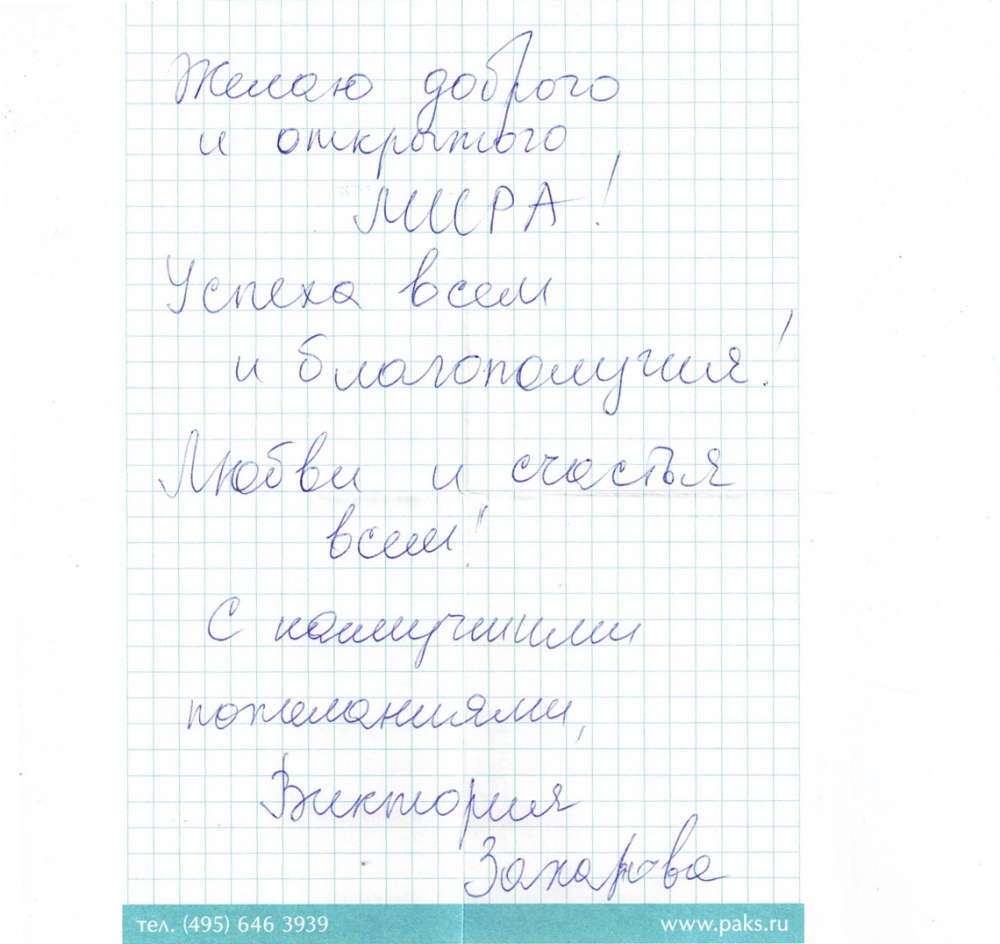 Желаю доброго
и открытого
МИРА!
Успеха всем
и благополучия!
Любви и счастья
всем!
С наилучшими
пожеланиями,
Виктория
Захарова
тел. (495) 646 3939 www.paks.ru